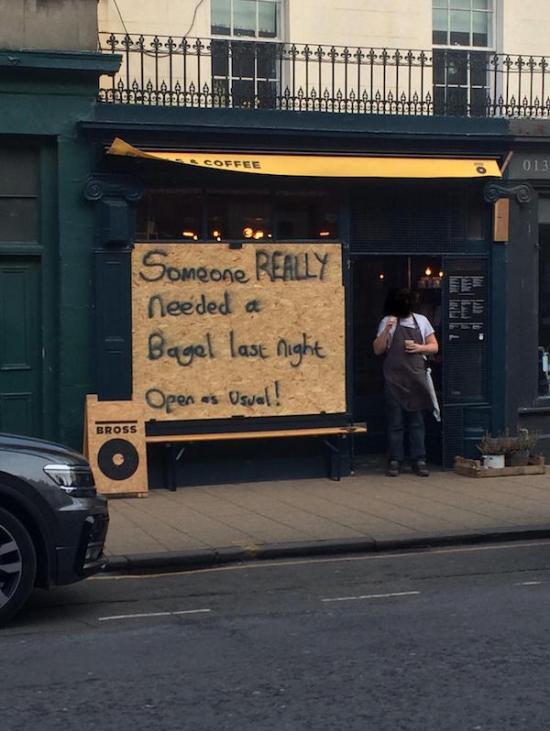 & COFFEE
013
Someone REALLY
needed a
Bagel last night
Open as usual!
BROSS